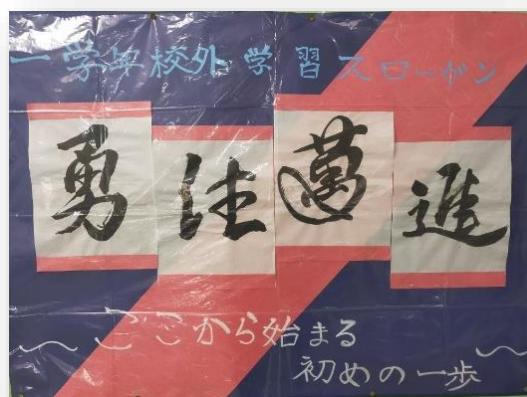 一学年校外学習スローガン
勇往邁進
〜ここから始まる
初めの一歩〜